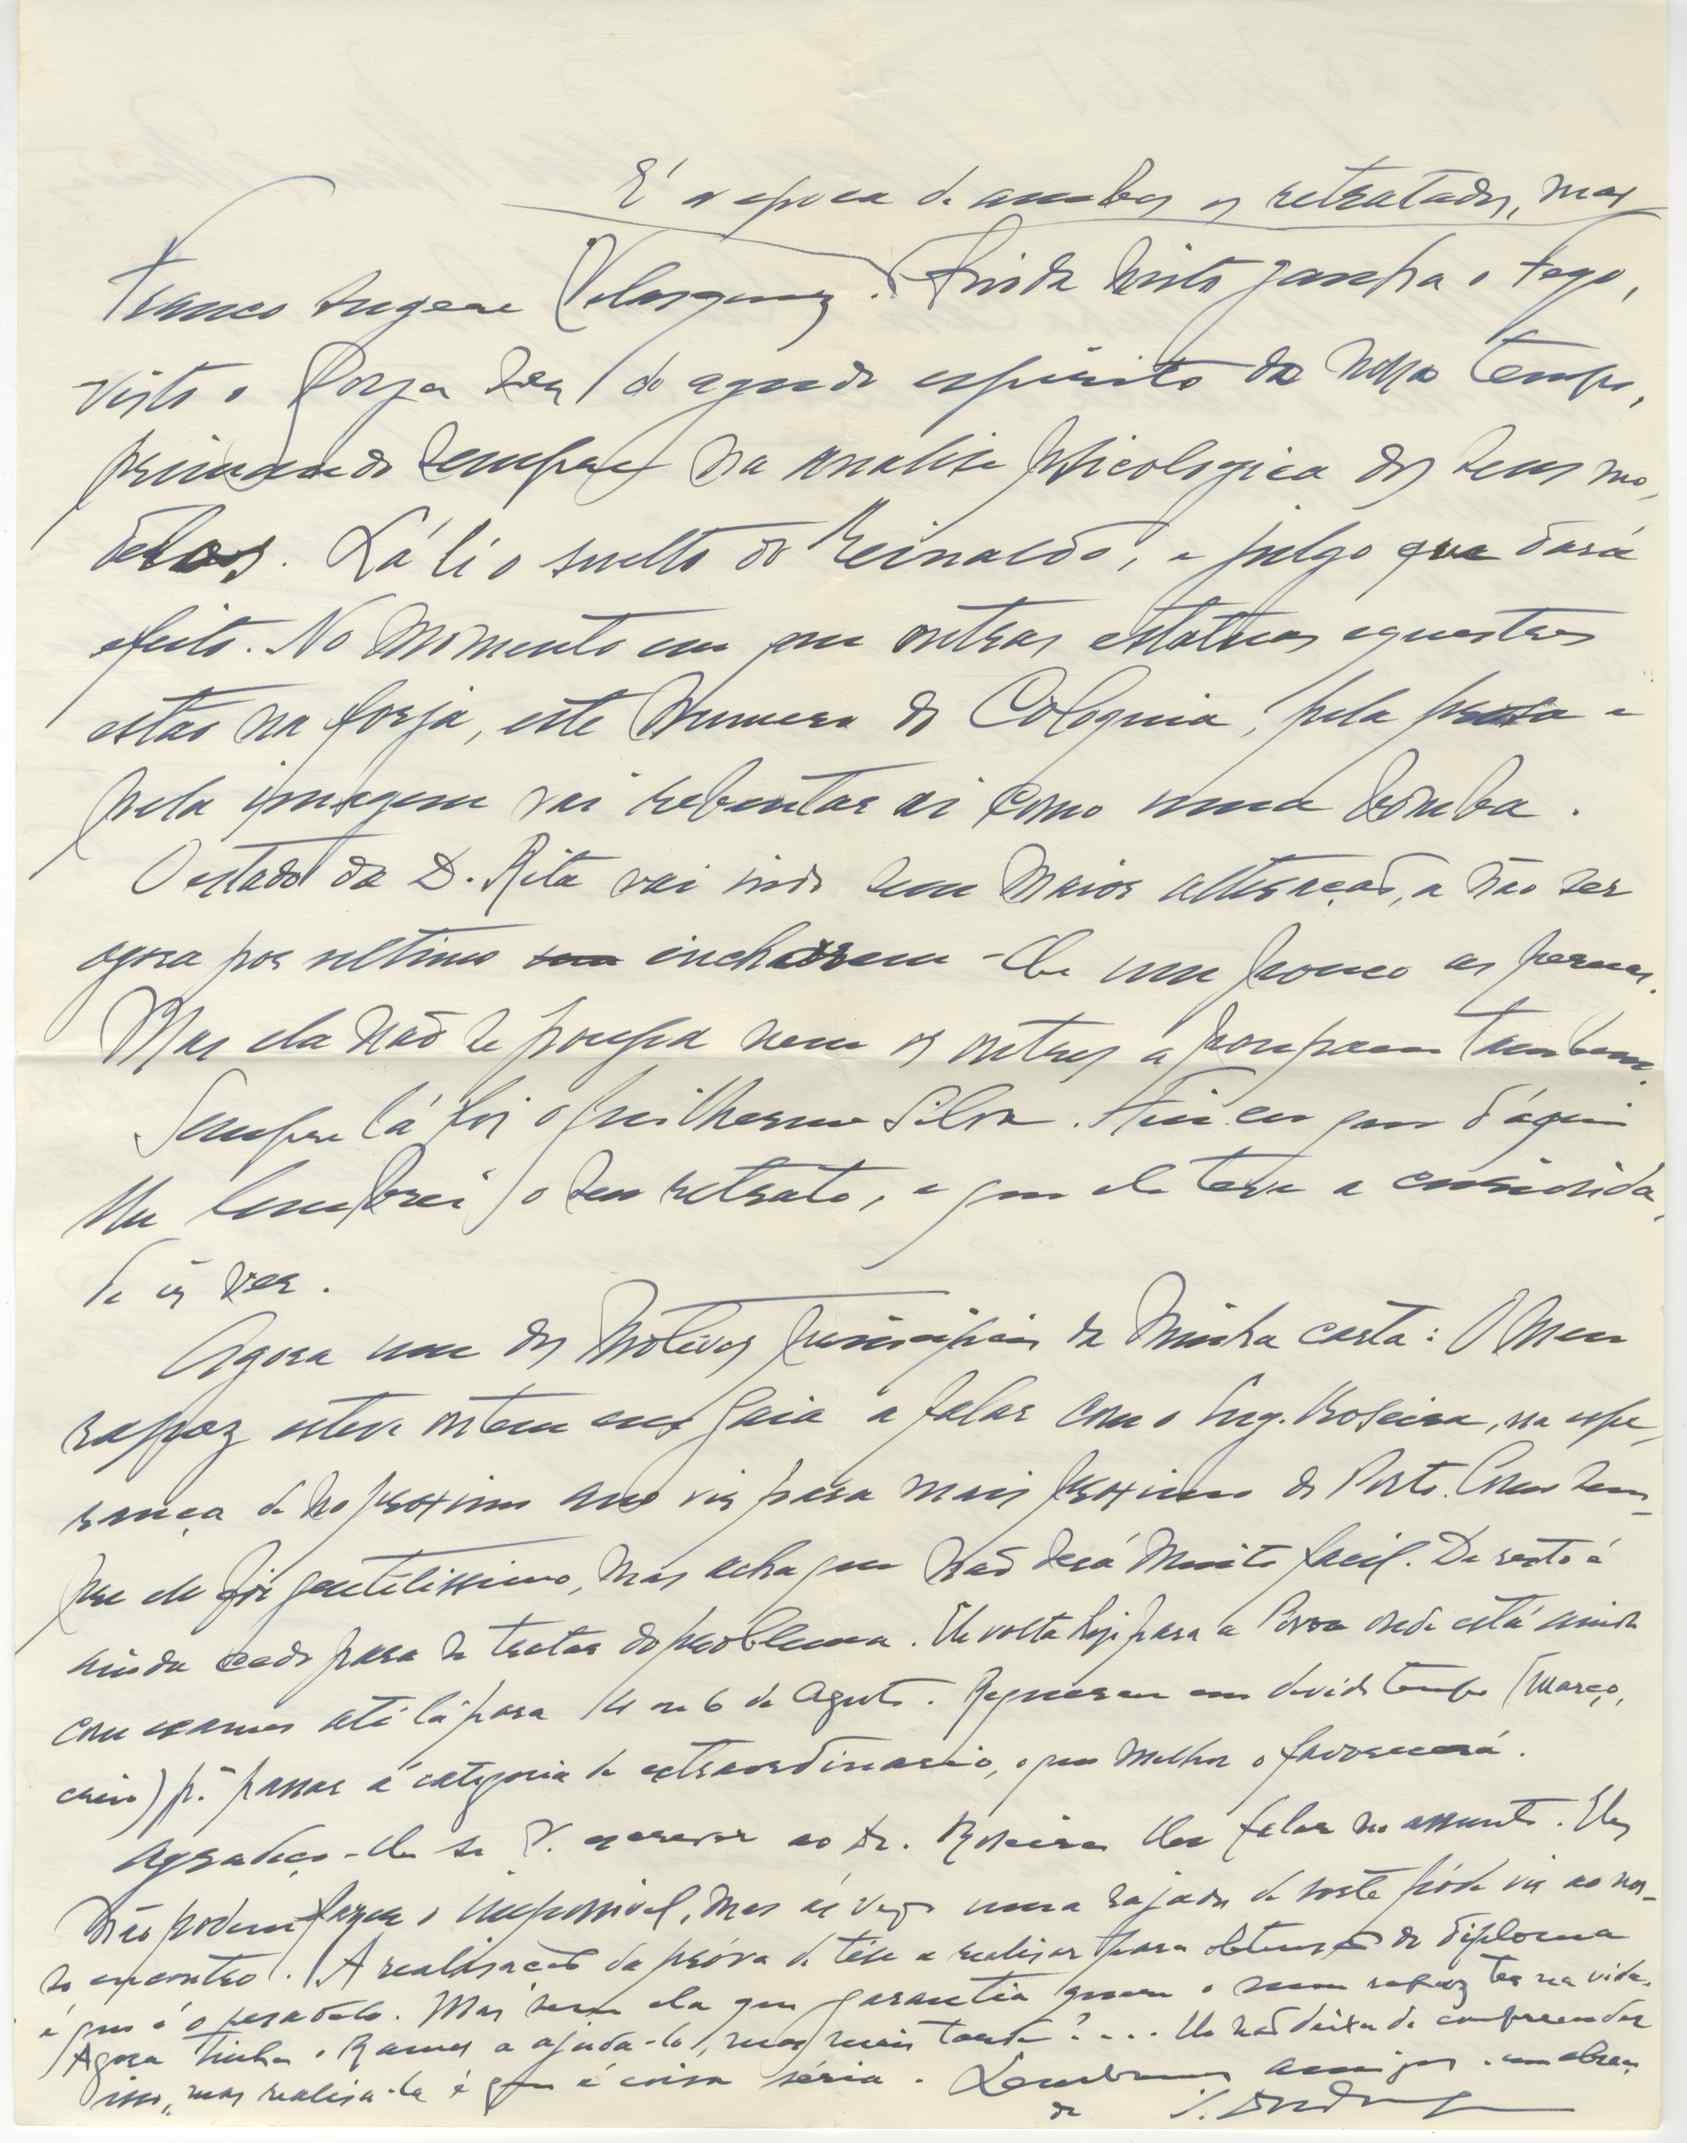 É a epoca de ambos os retratados, mas
Franco sugere Velasquez. Ainda nisto ganha o fogo,
visto o Goya ser do agudo espirito do nosso tempo,
primando sempre na analise psicologica dos seus mo-
delos. Lá li o suelto do Reinaldo, e julgo que dará
efeito. No momento em que outras estatuas equestres
estão na forja, este numero do Coloquio, pela prosa e
pela imagem vai rebentar ai como uma bomba.
O estado da D. Rita vai indo sem maior alteração, a não ser
agora por ultimo incharem-lhe um pouco as pernas.
Mas ela não se poupa nem os outros a poupam tambem.
Sempre lá foi o Guilherme Silva. Fui eu que d'aqui
lhe lembrei o seu retrato, e que ele teve a curiosida-
de de ver.
Agora um dos motivos principais da minha carta: O meu
rapaz esteve ontem em Gaia a falar com o Eng. Roseira, na espe-
rança de no proximo ano vir para mais proximo do Porto. Como sem-
pre ele foi gentilissimo, mas acha que não será muito facil. De resto é
ainda cedo para se tratar do problema. Ele volta hoje para a Povoa onde está ainda
com exames até lá para 4 ou 6 de Agosto. Requereu em devido tempo (março,
creio) pª passar á categoria de extraordinario, o que melhor o favorecerá.
Agradeço-lhe se V. escrever ao Dr. Roseira lhe falar no assunto. Eles
não podem fazer o impossivel, mas ás vezes uma rajada de sorte póde vir ao nos-
so encontro. A realisação da próva de tése a realisar para obtenção do diploma
é que é o pesadelo. Mas sem ela que garantia quer o meu rapaz ter na vida.
Agora tinha o Ramos a ajuda-lo, mas mais tarde?.... Ele não deixa de compreender
isso, mas realisa-la é que é coisa séria. Lembranças amigas e um abraço
de